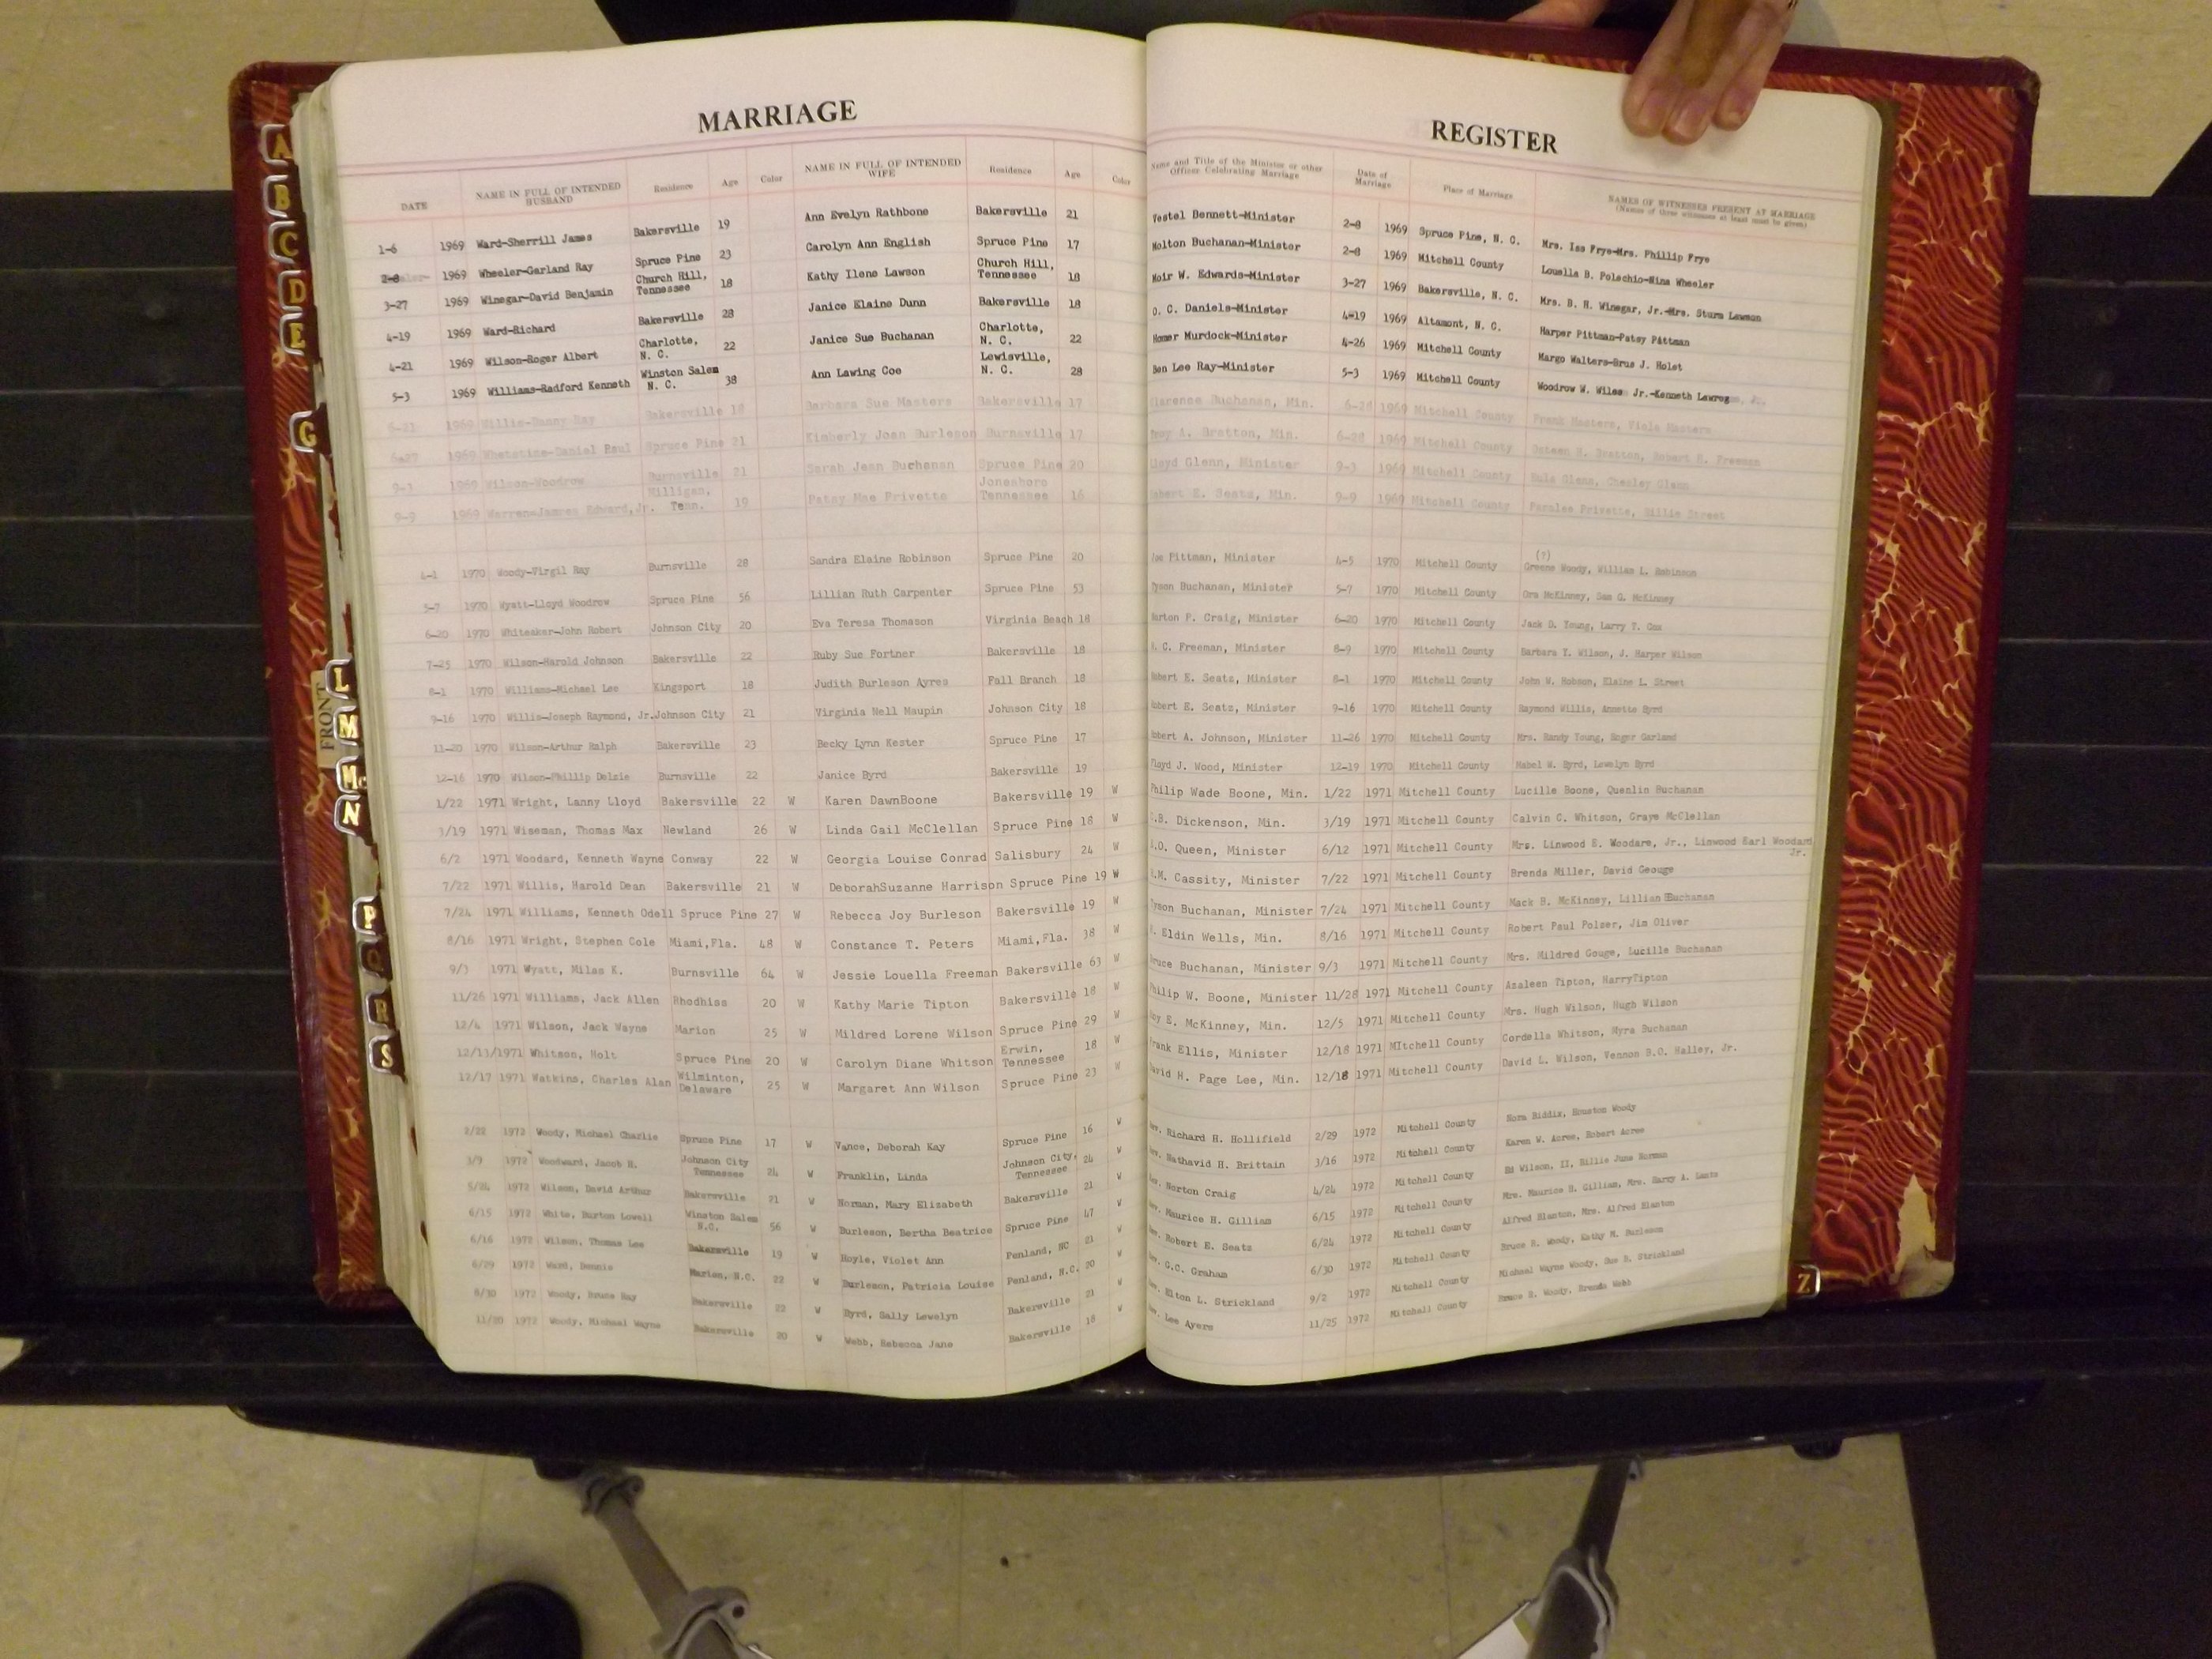 MARRIAGE
REGISTER
DATE NAME IN FULL OF INTENDED HUSBAND Residence Age Color NAME IN FULL OF INTENDED WIFE Residence Age Color Name and Title of the Minister or other Officer Celebrating Marriage Date of Marriage Place of Marriage NAMES OF WITNESSES PRESENT AT MARRIAGE (Names of three witnesses at least must be given)
1-6 1969 Ward-Sherrill James Bakersville 19 Ann Evelyn Rathbone Bakersville 21 Vestel Bennett-Minister 2-8 1969 Spruce Pine, N. C. Mrs. Iss Frye-Mrs. Phillip Frye
2-8 1969 Wheeler-Garland Ray Spruce Pine 23 Carolyn Ann English Spruce Pine 17 Molton Buchanan-Minister 2-8 1969 Mitchell County Louella B. Polechio-Nina Wheeler
3-27 1969 Winegar-David Benjamin Church Hill, Tennessee 18 Kathy Ilene Lawson Church Hill, Tennessee 18 Moir W. Edwards-Minister 3-27 1969 Bakersville, N. C. Mrs. B. H. Winegar, Jr.-Mrs. Sturm Lawson
4-19 1969 Ward-Richard Bakersville 28 Janice Elaine Dunn Bakersville 18 O. C. Daniels-Minister 4-19 1969 Altamont, N. C. Harper Pittman-Patsy Pittman
4-21 1969 Wilson-Roger Albert Charlotte, N. C. 22 Janice Sue Buchanan Charlotte, N. C. 22 Homer Murdock-Minister 4-26 1969 Mitchell County Margo Walters-Brus J. Holst
5-3 1969 Williams-Radford Kenneth Winston Salem N. C. 38 Ann Lawing Coe Lewisville, N. C. 28 Ben Lee Ray-Minister 5-3 1969 Mitchell County Woodrow W. Wiles Jr.-Kenneth
6-21 1969 Willis-Danny Ray Bakersville 18 Barbara Sue Masters Bakersville 17 Clarence Buchanan, Min. 1969 Mitchell County Frank Masters, Viola Masters
6-27 1969 Whetstine-Daniel Paul Spruce Pine 21 Kimberly Joan Burleson Burnsville 17 A. Bratton, Min. 6-28 1969 Mitchell County Bratton, Robert Freeman
9-3 1969 Wilson-Woodrow Burnsville 21 Sarah Jean Buchanan Spruce Pine 20 Lloyd Glenn, Minister 9-3 1969 Mitchell County Glenn, Chesley Glenn
9-9 1969 Warren-James Edward, Jr. Milligan, Tenn. 19 Patsy Mae Privette Jonesboro Tennessee 16 Robert E. Seatz, Min. 9-9 1969 Mitchell County Privette, Billie Street
4-1 1970 Woody-Virgil Ray Burnsville 28 Sandra Elaine Robinson Spruce Pine 20 Pittman, Minister 4-5 1970 Mitchell County (?) Greene Woody, William L. Robinson
5-7 1970 Wyatt-Lloyd Woodrow Spruce Pine 56 Lillian Ruth Carpenter Spruce Pine 53 Tyson Buchanan, Minister 5-7 1970 Mitchell County Ora McKinney, Sam G. McKinney
6-20 1970 Whiteaker-John Robert Johnson City 20 Eva Teresa Thomason Virginia Beach 18 F. Craig, Minister 6-20 1970 Mitchell County Jack D. Young, Larry T. Cox
7-25 1970 Wilson-Harold Johnson Bakersville 22 Ruby Sue Fortner Bakersville 18 C. Freeman, Minister 8-9 1970 Mitchell County Barbara T. Wilson, J. Harper Wilson
8-1 1970 Williams-Michael Lee Kingsport 18 Judith Burleson Ayres Fall Branch 18 Robert E. Seatz, Minister 8-1 1970 Mitchell County John W. Robson, Elaine L. Street
9-16 1970 Willis-Joseph Raymond, Jr. Johnson City 21 Virginia Nell Maupin Johnson City 18 Robert E. Seatz, Minister 9-16 1970 Mitchell County Raymond Willis, Annette Byrd
11-20 1970 Wilson-Arthur Ralph Bakersville 23 Becky Lynn Kester Spruce Pine 17 Robert A. Johnson, Minister 11-26 1970 Mitchell County Mrs. Randy Young, Roger Garland
12-16 1970 Wilson-Phillip Delzie Burnsville 22 Janice Byrd Bakersville 19 Floyd J. Wood, Minister 12-19 1970 Mitchell County Mabel W. Byrd, Lewelyn Byrd
1/22 1971 Wright, Lanny Lloyd Bakersville 22 W Karen DawnBoone Bakersville 19 W Philip Wade Boone, Min. 1/22 1971 Mitchell County Lucille Boone, Quenlin Buchanan
3/19 1971 Wiseman, Thomas Max Newland 26 W Linda Gail McClellan Spruce Pine 18 W .B. Dickenson, Min. 3/19 1971 Mitchell County Calvin C. Whitson, Graye McClellan
6/2 1971 Woodard, Kenneth Wayne Conway 22 W Georgia Louise Conrad Salisbury 24 W .O. Queen, Minister 6/12 1971 Mitchell County Mrs. Linwood E. Woodare, Jr., Linwood Earl Woodard, Jr.
7/22 1971 Willis, Harold Dean Bakersville 21 W DeborahSuzanne Harrison Spruce Pine 19 W .M. Cassity, Minister 7/22 1971 Mitchell County Brenda Miller, David Geouge
7/24 1971 Williams, Kenneth Odell Spruce Pine 27 W Rebecca Joy Burleson Bakersville 19 W Tyson Buchanan, Minister 7/24 1971 Mitchell County Mack B. McKinney, Lillian Buchanan
8/16 1971 Wright, Stephen Cole Miami,Fla. 48 W Constance T. Peters Miami,Fla. 38 W Eldin Wells, Min. 8/16 1971 Mitchell County Robert Paul Polzer, Jim Oliver
9/3 1971 Wyatt, Milas K. Burnsville 64 W Jessie Louella Freeman Bakersville 63 W Bruce Buchanan, Minister 9/3 1971 Mitchell County Mrs. Mildred Gouge, Lucille Buchanan
11/26 1971 Williams, Jack Allen Rhodhiss 20 W Kathy Marie Tipton Bakersville 18 W Philip W. Boone, Minister 11/28 1971 Mitchell County Azaleen Tipton, HarryTipton
12/4 1971 Wilson, Jack Wayne Marion 25 W Mildred Lorene Wilson Spruce Pine 29 W E. McKinney, Min. 12/5 1971 Mitchell County Mrs. Hugh Wilson, Hugh Wilson
12/13/1971 Whitson, Holt Spruce Pine 20 W Carolyn Diane Whitson Erwin, Tennessee 18 W Frank Ellis, Minister 12/18 1971 MItchell County Cordella Whitson, Myra Buchanan
12/17 1971 Watkins, Charles Alan Wilminton, Delaware 25 W Margaret Ann Wilson Spruce Pine 23 W David H. Page Lee, Min. 12/18 1971 Mitchell County David L. Wilson, Vennon B.O. Halley, Jr.
2/22 1972 Woody, Michael Charlie Spruce Pine 17 W Vance, Deborah Kay Spruce Pine 16 W Rev. Richard H. Hollifield 2/29 1972 Mitchell County Nora Biddix, Houston Woody
3/9 1972 Woodward, Jacob H. Johnson City Tennessee 24 W Franklin, Linda Johnson City, Tennessee 24 W Rev. Nathavid H. Brittain 3/16 1972 Mitchell County Karen W. Acree, Robert Acree
5/24 1972 Wilson, David Arthur Bakersville 21 W Norman, Mary Elizabeth Bakersville 21 W Rev. Norton Craig 4/24 1972 Mitchell County Ed Wilson, II, Billie June Norman
6/15 1972 White, Burton Lowell Winston Salem N.C. 56 W Burleson, Bertha Beatrice Spruce Pine 47 W Rev. Maurice H. Gilliam 6/15 1972 Mitchell County Mrs. Maurice H. Gilliam, Mrs. Harry A. Lentz
6/16 1972 Wilson, Thomas Lee Bakersville 19 W Hoyle, Violet Ann Penland, NC 21 W Rev. Robert E. Seatz 6/24 1972 Mitchell County Alfred Blanton, Mrs. Alfred Blanton
6/29 1972 Ward, Dennis Marion, N.C. 22 W Burleson, Patricia Louise Penland, N.C. 20 W Rev. G.C. Graham 6/30 1972 Mitchell County Bruce R. Woody, Kathy M. Burleson
8/30 1972 Woody, Bruce Ray Bakersville 22 W Byrd, Sally Lewelyn Bakersville 21 W Rev. Elton L. Strickland 9/2 1972 Mitchell County Micheal Wayne Woody, Sue R. Strickland
11/20 1972 Woody, Micheal Wayne Bakersville 20 W Webb, Rebecca Jane Bakersville 18 W Rev. Lee Ayers 11/25 1972 Mitchell County Bruce R. Woody, Brenda Webb
A
B
C
D
E
G
FRONT
L
M
Mc
N
P
Q
R
S
Z